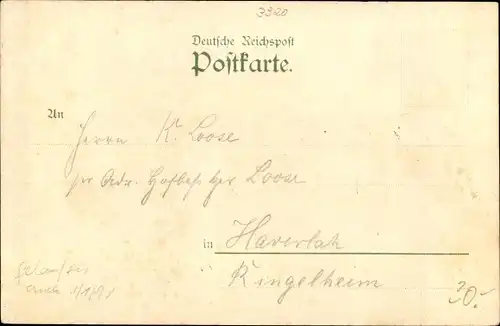 3320
Deutsche Reichspost
Postkarte.
An
Herrn Kr Loose
per Adr. Hofbes. Loose
in Haverlah
Ringelheim
20.-